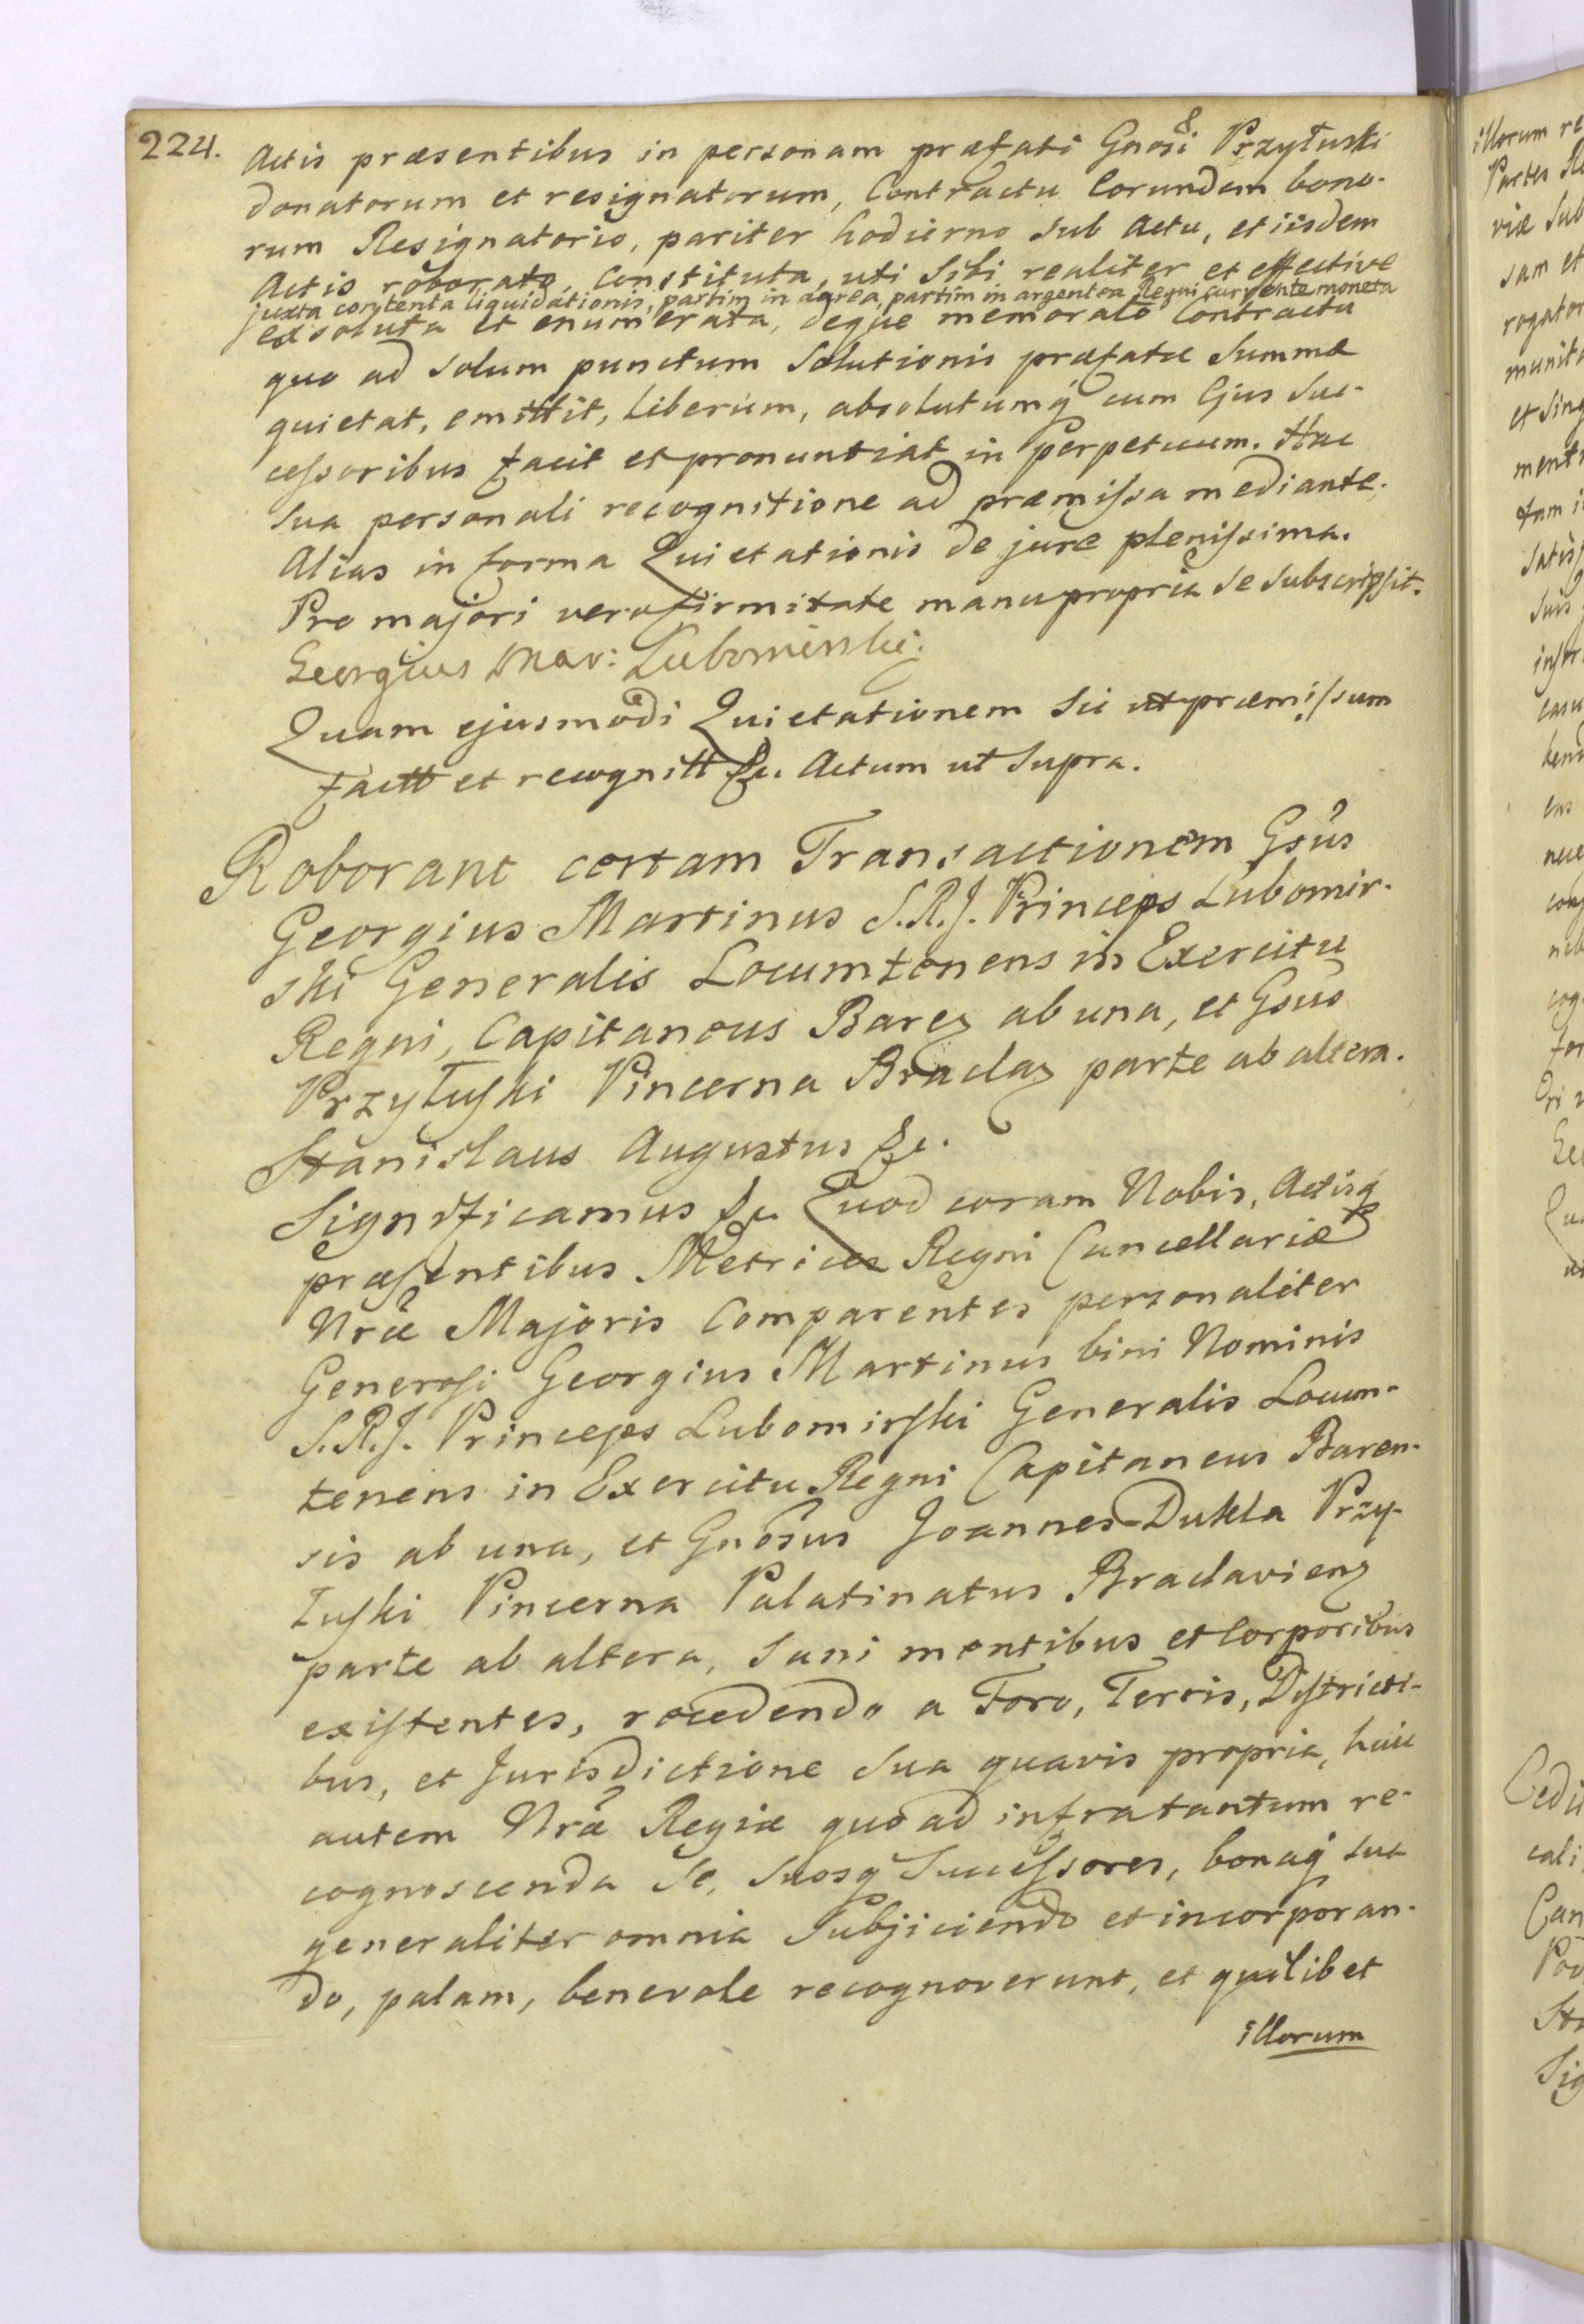 224.
Actis præsentibus in personam præfati Gnosi Przyłuski
donatorum et resignatorum, Contractu Eorundem bono-
rum Resignatorio, pariter hodierno sub Actu, et iisdem
Actis roborato, constituta, uti Sibi realiter et effective
juxta contenta liquidationis, partim in aurea, partim in argentea Regni currente moneta
exsoluta et enumerata, deque memorato Contractu
quo ad solum punctum Solutionis præfatæ Summæ
quietat, emittit, liberum, absolutumq cum Ejus Suc-
cessoribus facit et pronuntiat in perpetuum. Hac
Sua personali recognitione ad præmissa mediante.
Alias in forma Quietationis de jure plenissima.
Pro majori vero firmitate manu propria se subscripsit.
Georgius Mar: Lubomirski.
Quam ejusmodi Quietationem sic ut præmissum
factt et recognitt &c. Actum ut Supra.
Roborant certam Transactionem Gsus
Georgius Martinus S.R.J. Princeps Lubomir-
ski Generalis Locumtenens in Exercitu
Regni, Capitaneus Barez ab una, et Gsus
Przyłuski Pincerna Braclaz parte ab altera.
Stanislaus Augustus &c.
Significamus &c. Quod coram Nobis, Actisq
præsentibus Metrices Regni Cancellariæ
Nræ Majoris Comparentes personaliter
Generosi Georgius Martinus bini Nominis
S.R.J. Princeps Lubomirski Generalis Locum-
tenens in Exercitu Regni Capitaneus Baren-
sis ab una, et Gnosus Joannes Dukla Przy-
łuski Pincerna Palatinatus Braclavienz
parte ab altera, Sani mentibus et Corporibus
existentes, recedendo a Foro, Terris, Districti-
bus, et Jurisdictione Sua quavis propria, huic
autem Nræ Regiæ quo ad infra tantum re-
cognoscenda Se, Suosq Successores, bonaq sua
generaliter omnia Subjiciendo et incorporan-
do, palam, benevole recognoverunt, et quilibet
illorum